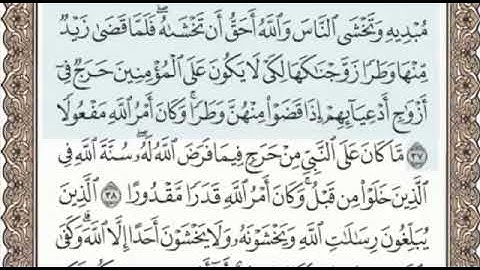 مُبْدِيهِ وَتَخْشَى ٱلنَّاسَ وَٱللَّهُ أَحَقُّ أَن تَخْشَىٰهُ ۖ فَلَمَّا قَضَىٰ زَيْدٌ
مِّنْهَا وَطَرًا زَوَّجْنَـٰكَهَا لِكَىْ لَا يَكُونَ عَلَى ٱلْمُؤْمِنِينَ حَرَجٌ فِىٓ
أَزْوَٰجِ أَدْعِيَآئِهِمْ إِذَا قَضَوْا۟ مِنْهُنَّ وَطَرًا ۚ وَكَانَ أَمْرُ ٱللَّهِ مَفْعُولًا
٣٧ مَّا كَانَ عَلَى ٱلنَّبِىِّ مِنْ حَرَجٍ فِيمَا فَرَضَ ٱللَّهُ لَهُۥ ۖ سُنَّةَ ٱللَّهِ فِى
ٱلَّذِينَ خَلَوْا۟ مِن قَبْلُ ۚ وَكَانَ أَمْرُ ٱللَّهِ قَدَرًا مَّقْدُورًا ٣٨ ٱلَّذِينَ
يُبَلِّغُونَ رِسَـٰلَـٰتِ ٱللَّهِ وَيَخْشَوْنَهُۥ وَلَا يَخْشَوْنَ أَحَدًا إِلَّا ٱللَّهَ ۗ وَكَفَىٰ